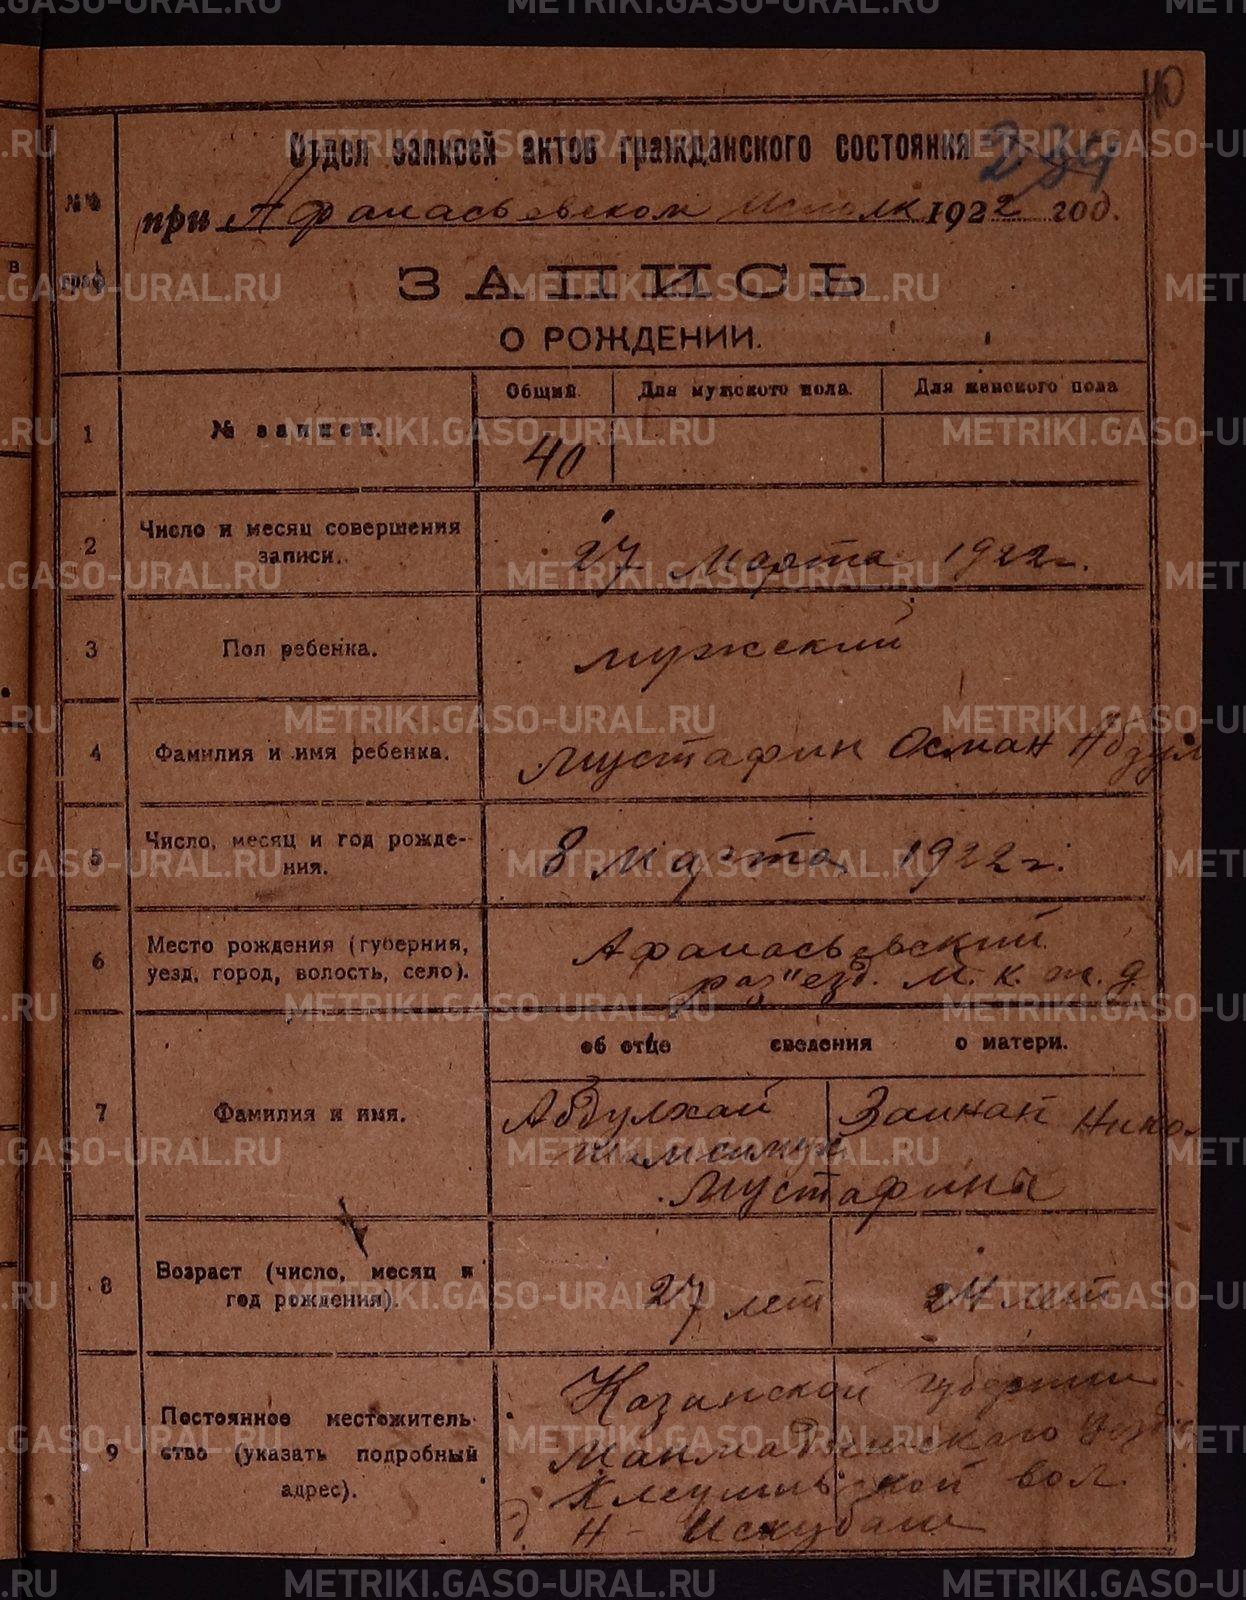 40
Отдел записей актов гражданского состояния
234
№№ граф
при Афанасьевском Исполк 1922 год.
ЗАПИСЬ
О РОЖДЕНИИ.
Общий. Для мужского пола. Для женского пола
1 № записи. 40
2 Число и месяц совершения
записи. 27 Марта 1922 г.
3 Пол ребенка. мужский
4 Фамилия и имя ребенка. Мустафин Осман Абдул
5 Число, месяц и год рожде-
ния. 8 Марта 1922 г.
6 Место рождения (губерния,
уезд, город, волость, село).
Афанасьевский
раз"езд. М. К. ж. д.
об отце сведения о матери.
7 Фамилия и имя.
Абдулхай Заинап
Мустафины
8 Возраст (число, месяц и
год рождения). 27 лет 24 лет
9 Постоянное местожитель-
ство (указать подробный
адрес).
Казанской губернии
вол.
METRIKI.GASO-URAL.RU